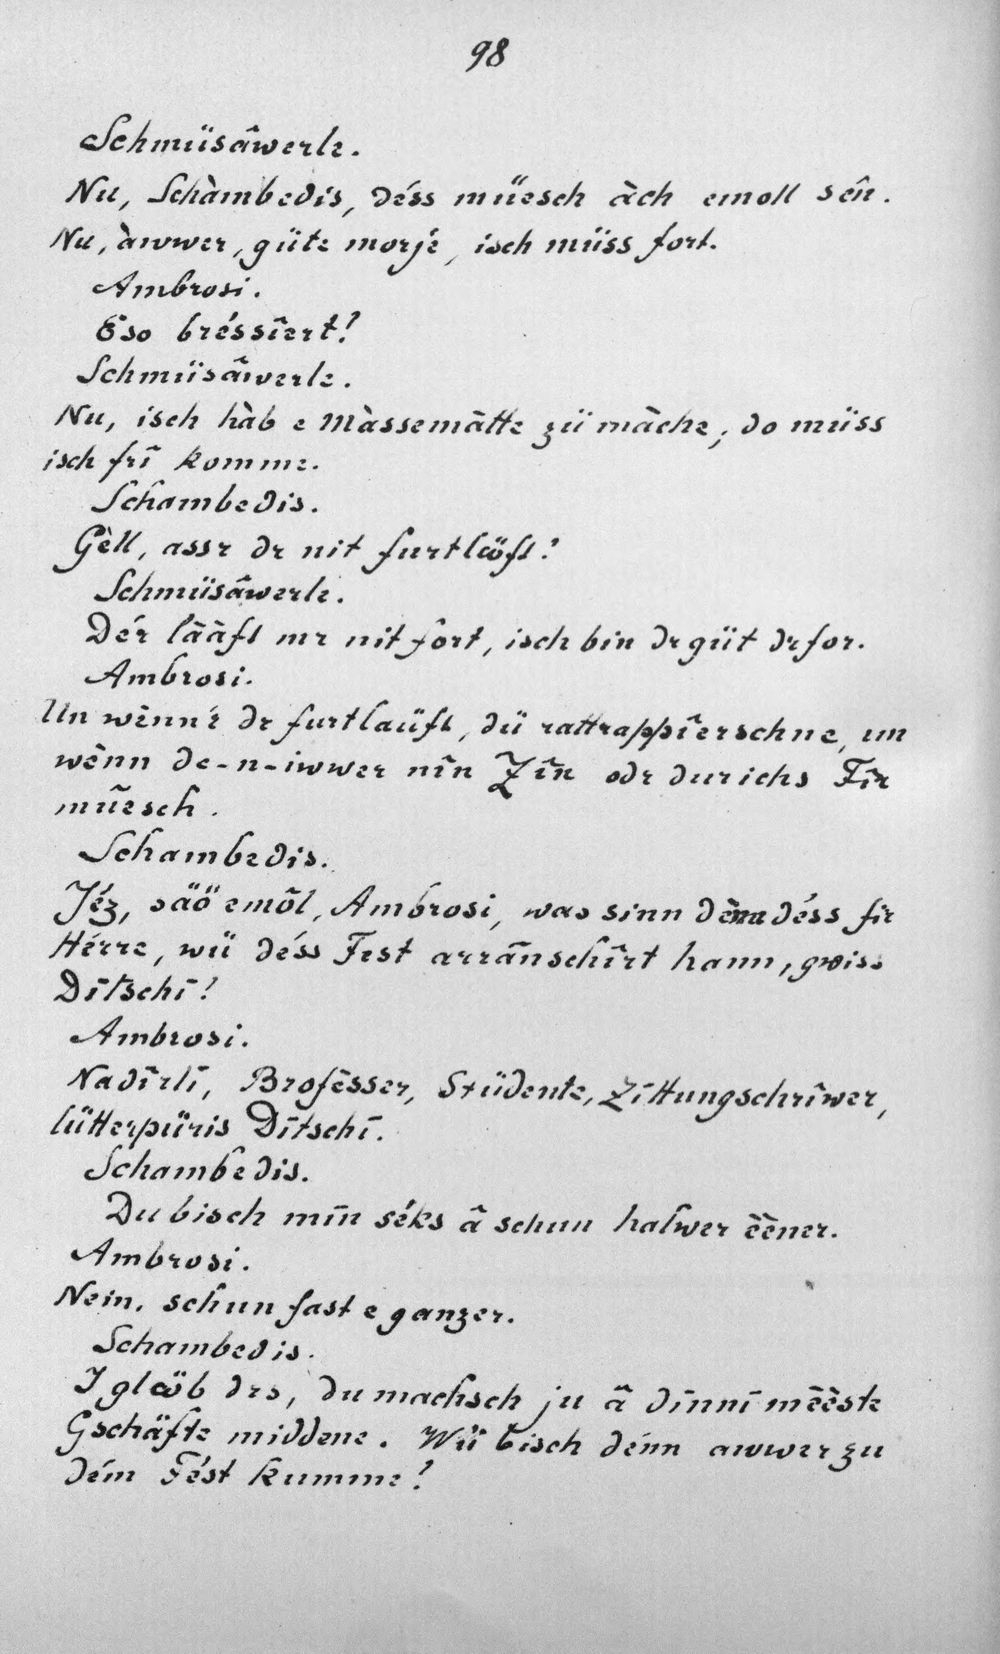 98
Schmüsâwerle.
Nu, Schàmbedis, déss müesch àch emoll sên.
Nu, àwwer, güte morje, isch müss fort.
Ambrosi.
Eso bréssîert?
Schmüsâwerle.
Nu, isch hàb e Màssemàtte zü màche, do müss
isch frî komme.
Schambedis.
Gèll, assr dr nit furtlöft?
Schmüsâwerle.
Dér lààft mr nit fort, isch bin dr güt drfor.
Ambrosi.
Un wènn'r dr furtlaüft, dü rattrappîerschne, un
wènn de-n-iwwer nîn Zîn odr durichs Fîr
müesch.
Schambedis.
Jéz, säö emôl, Ambrosi, was sinn dènn déss fir
Hérre, wü déss Fest arrânschîrt hann, gwiss
Dîtschi!
Ambrosi.
Nadîrlî, Brofèsser, Stüdente, Zîttungschrîwer,
lütterpüris Dîtschi.
Schambedis.
Du bisch mîn séks â schun halwer èèner.
Ambrosi.
Nein, schun fast e ganzer.
Schambedis.
I glöb drs, du machsch ju â dînni mèèste
Gschäfte middene. Wü bisch dénn awwer zu
dém Fést kumme?